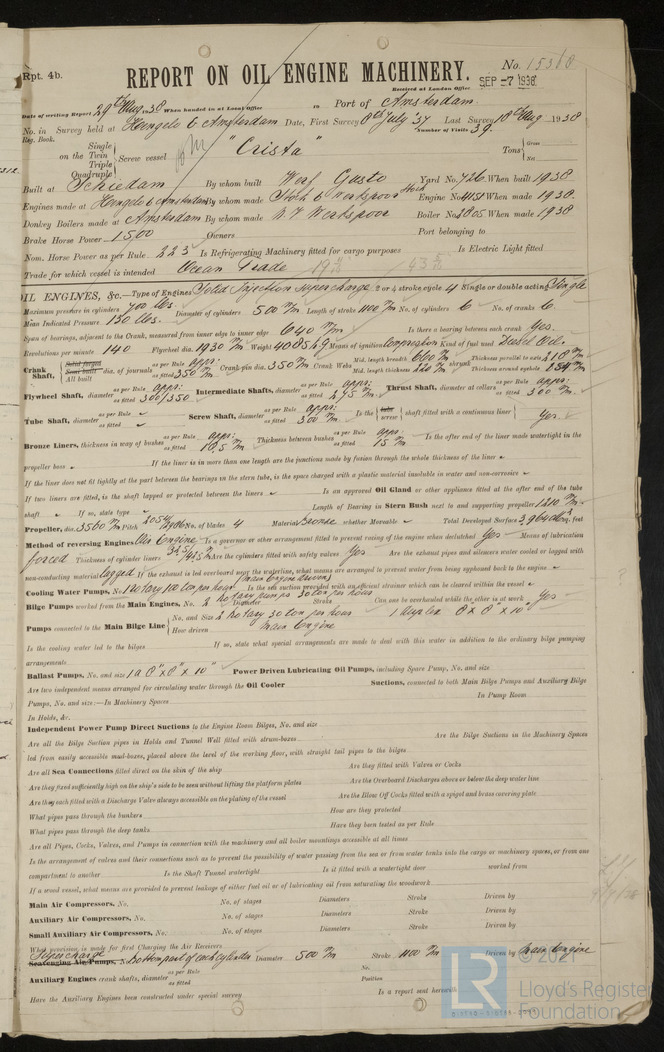 Rpt. 4b.
No. 15318
REPORT ON OIL ENGINE MACHINERY.
SEP -7 1938
Received at London Office
Date of writing Report 29th Aug. 1938 When handed in at Local Office Port of Amsterdam.
No. in Survey held at Hengelo & Amsterdam Date, First Survey 8th July '37 Last Survey 18th Aug 1938
Reg. Book. Number of Visits 39.
Single
on the Twin
Triple
Quadruple
Screw vessel "Crista" Tons Gross
Net
Built at Schiedam By whom built Werf Gusto Yard No. 726 When built 1938
Engines made at Hengelo & Amsterdam By whom made Stork & Werkspoor Engine No. 4151 When made 1938.
Donkey Boilers made at Amsterdam By whom made N.V. Werkspoor Boiler No. 1805 When made 1938
Brake Horse Power 1500 Owners Port belonging to
Nom. Horse Power as per Rule 223 Is Refrigerating Machinery fitted for cargo purposes Is Electric Light fitted
Trade for which vessel is intended Ocean Trade
OIL ENGINES, &c.—Type of Engines Solid Injection Supercharge 2 or 4 stroke cycle 4 Single or double acting Single
Maximum pressure in cylinders 700 lbs. Diameter of cylinders 500 m/m Length of stroke 1100 m/m No. of cylinders 6 No. of cranks 6.
Mean Indicated Pressure 130 lbs.
Span of bearings, adjacent to the Crank, measured from inner edge to inner edge 640 m/m Is there a bearing between each crank Yes.
Revolutions per minute 140 Flywheel dia. 1930 m/m Weight Means of ignition Compression Kind of fuel used Diesel Oil.
Crank Shaft, Solid forged Semi built All built dia. of journals as per Rule appr: as fitted 350 m/m Crank pin dia. 350 m/m Crank Webs Mid. length breadth 660 m/m Thickness parallel to axis 218 m/m
Mid. length thickness shrunk Thickness around eyehole
Flywheel Shaft, diameter as per Rule appr: as fitted 300/350 Intermediate Shafts, diameter as per Rule appr: as fitted 275 m/m Thrust Shaft, diameter at collars as per Rule appr: as fitted 300 m/m
Tube Shaft, diameter as per Rule as fitted Screw Shaft, diameter as per Rule appr: as fitted 300 m/m Is the tube screw shaft fitted with a continuous liner Yes.
Bronze Liners, thickness in way of bushes as per Rule appr: as fitted 18,5 m/m Thickness between bushes as per Rule appr: as fitted 15 m/m Is the after end of the liner made watertight in the
propeller boss If the liner is in more than one length are the junctions made by fusion through the whole thickness of the liner
If the liner does not fit tightly at the part between the bearings on the stern tube, is the space charged with a plastic material insoluble in water and non-corrosive
If two liners are fitted, is the shaft lapped or protected between the liners Is an approved Oil Gland or other appliance fitted at the after end of the tube
shaft If so, state type Length of Bearing in Stern Bush next to and supporting propeller 1210 m/m
Propeller, dia. 3560 m/m Pitch No. of blades 4 Material Bronze whether Moveable Total Developed Surface sq. feet
Method of reversing Engines Oil Engine Is a governor or other arrangement fitted to prevent racing of the engine when declutched Yes Means of lubrication
forced Thickness of cylinder liners Are the cylinders fitted with safety valves Yes Are the exhaust pipes and silencers water cooled or lagged with
non-conducting material lagged If the exhaust is led overboard near the waterline, what means are arranged to prevent water from being syphoned back to the engine
Cooling Water Pumps, No. 1 rotary ton per hour (main Engine driven) Is the sea suction provided with an efficient strainer which can be cleared within the vessel
Bilge Pumps worked from the Main Engines, No. 2 rotary pumps 30 ton per hour Diameter Stroke Can one be overhauled while the other is at work Yes
Pumps connected to the Main Bilge Line No. and Size 2 rotary 30 ton per hour 1 duplex 8" x 8" x 10"
How driven main Engine
Is the cooling water led to the bilges If so, state what special arrangements are made to deal with this water in addition to the ordinary bilge pumping
arrangements
Ballast Pumps, No. and size 1 a 8" x 8" x 10" Power Driven Lubricating Oil Pumps, including Spare Pump, No. and size
Are two independent means arranged for circulating water through the Oil Cooler Suctions, connected to both Main Bilge Pumps and Auxiliary Bilge
Pumps, No. and size:—In Machinery Spaces In Pump Room
In Holds, &c.
Independent Power Pump Direct Suctions to the Engine Room Bilges, No. and size
Are all the Bilge Suction pipes in Holds and Tunnel Well fitted with strum-boxes Are the Bilge Suctions in the Machinery Spaces
led from easily accessible mud-boxes, placed above the level of the working floor, with straight tail pipes to the bilges
Are all Sea Connections fitted direct on the skin of the ship Are they fitted with Valves or Cocks
Are they fixed sufficiently high on the ship's side to be seen without lifting the platform plates Are the Overboard Discharges above or below the deep water line
Are they each fitted with a Discharge Valve always accessible on the plating of the vessel Are the Blow Off Cocks fitted with a spigot and brass covering plate
What pipes pass through the bunkers How are they protected
What pipes pass through the deep tanks Have they been tested as per Rule
Are all Pipes, Cocks, Valves, and Pumps in connection with the machinery and all boiler mountings accessible at all times
Is the arrangement of valves and their connections such as to prevent the possibility of water passing from the sea or from water tanks into the cargo or machinery spaces, or from one
compartment to another Is the Shaft Tunnel watertight Is it fitted with a watertight door worked from
If a wood vessel, what means are provided to prevent leakage of either fuel oil or of lubricating oil from saturating the woodwork
Main Air Compressors, No. No. of stages Diameters Stroke Driven by
Auxiliary Air Compressors, No. No. of stages Diameters Stroke Driven by
Small Auxiliary Air Compressors, No. No. of stages Diameters Stroke Driven by
What provision is made for first Charging the Air Receivers
Supercharge
Scavenging Air Pumps, No. bottom part of each cylinder Diameter 500 m/m Stroke 1100 m/m Driven by Main Engine
Auxiliary Engines crank shafts, diameter as per Rule as fitted No. Position
Have the Auxiliary Engines been constructed under special survey Is a report sent herewith
© 2021
LR
Lloyd's Register
Foundation